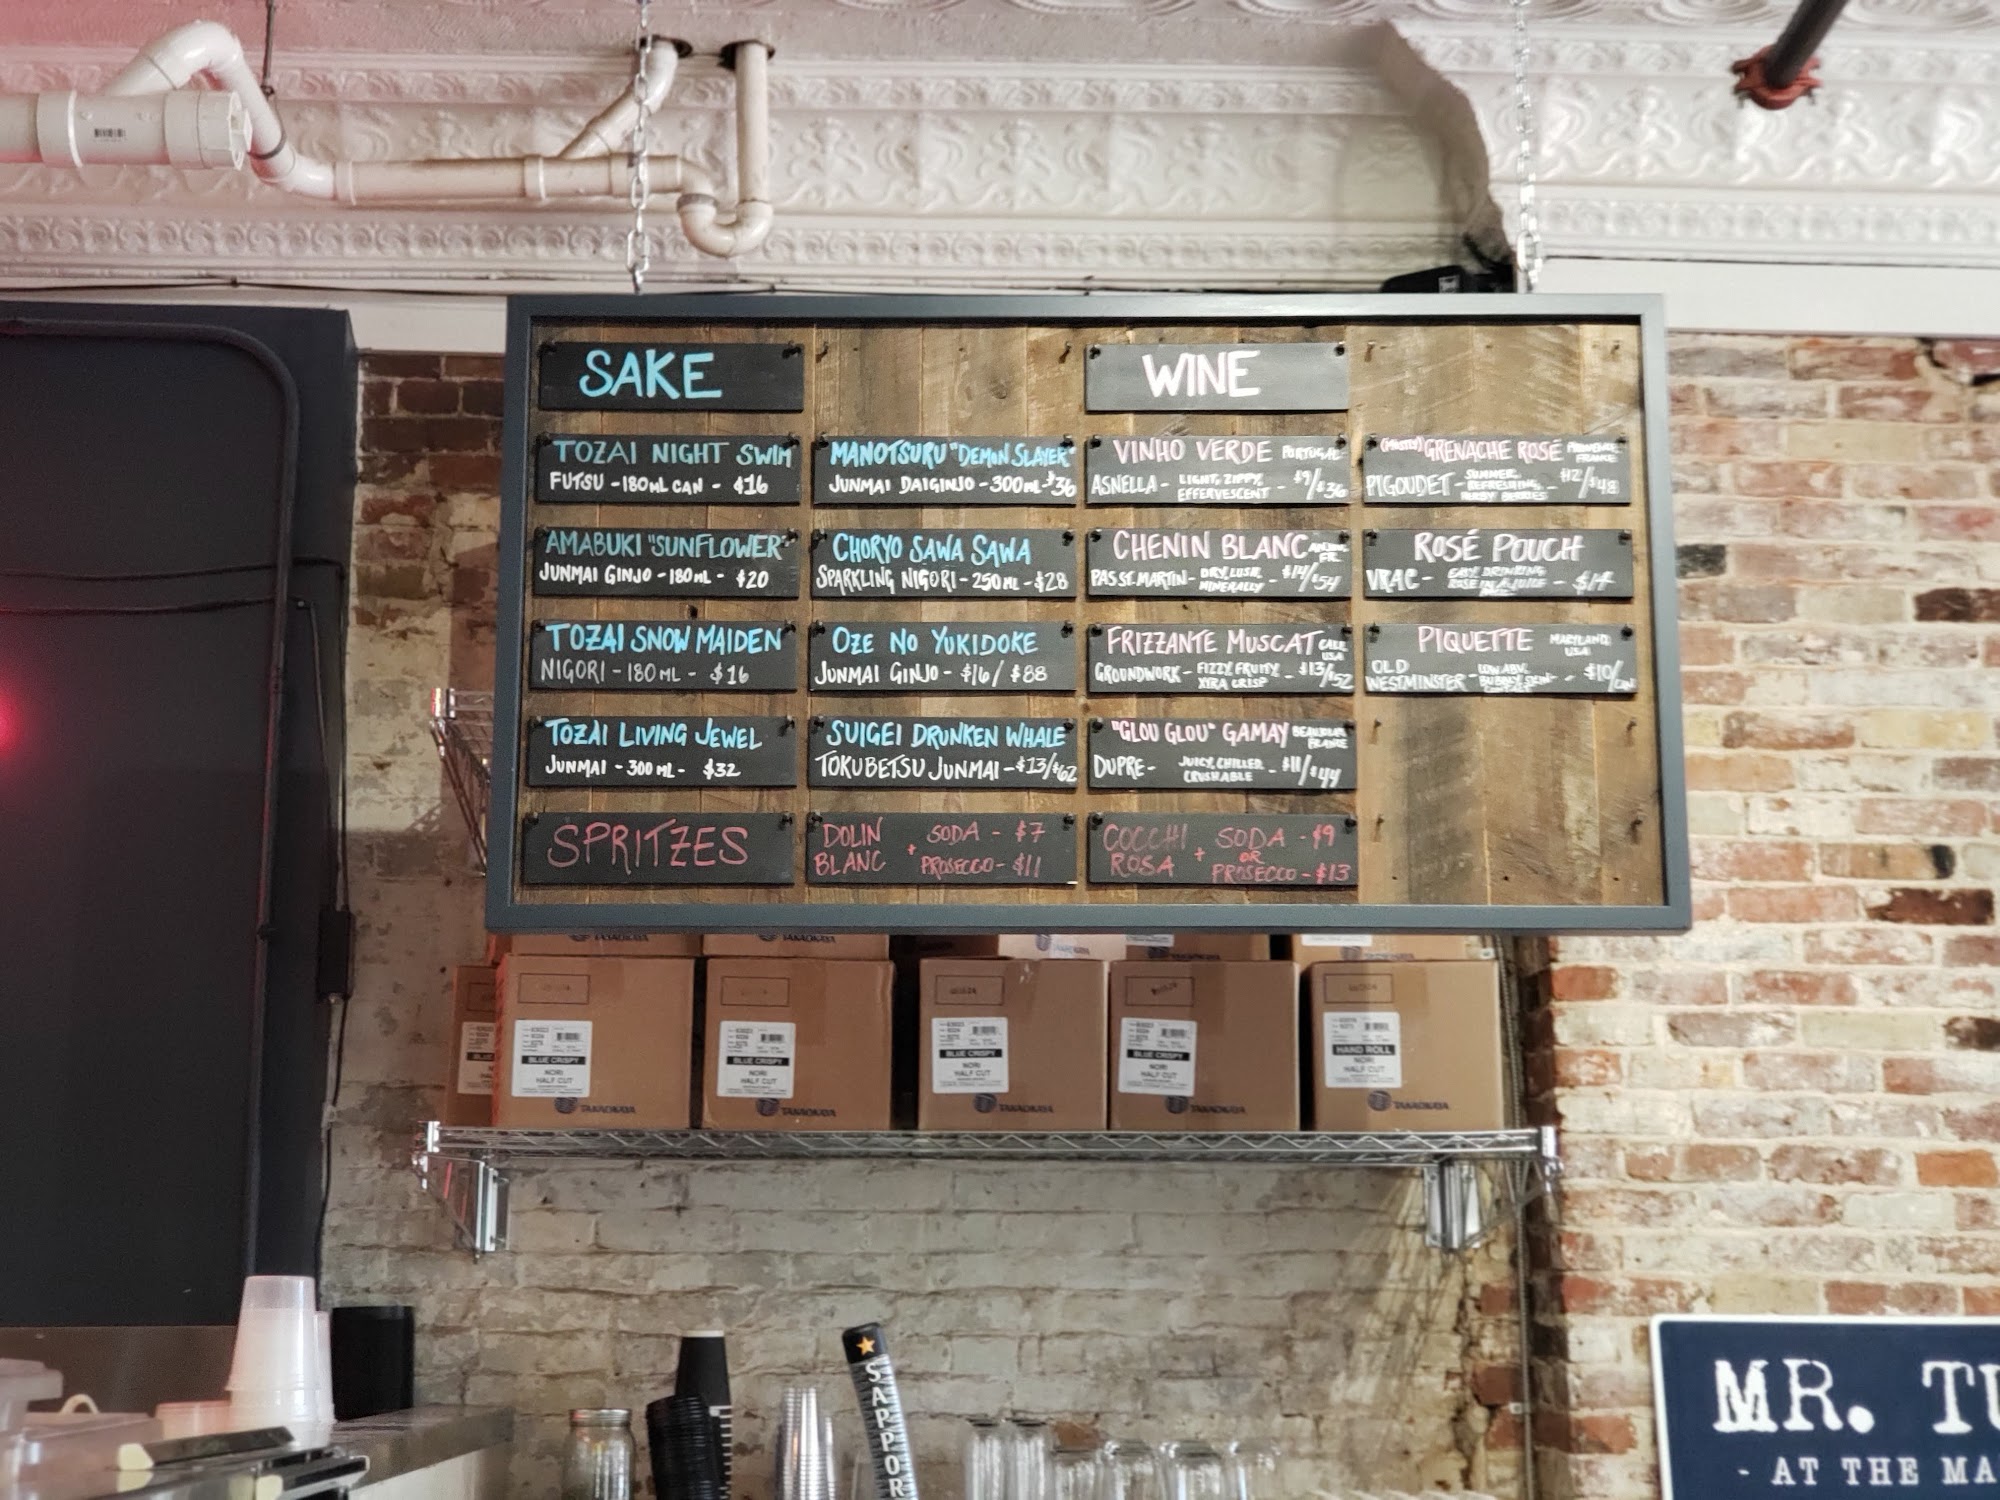 SAKE
TOZAI NIGHT SWIM
FUTSU - 180ML CAN - $16
AMABUKI "SUNFLOWER"
JUNMAI GINJO - 180ML - $20
TOZAI SNOW MAIDEN
NIGORI - 180ML - $16
TOZAI LIVING JEWEL
JUNMAI - 300ML - $32
MANOTSURU "DEMON SLAYER"
JUNMAI DAIGINJO - 300ML - $36
CHORYO SAWA SAWA
SPARKLING NIGORI - 250ML - $28
OZE NO YUKIDOKE
JUNMAI GINJO - $16/$88
SUIGEI DRUNKEN WHALE
TOKUBETSU JUNMAI - $13/$62
WINE
VINHO VERDE PORTUGAL
ASNELLA - LIGHT, ZIPPY, EFFERVESCENT - $9/$36
CHENIN BLANC FR.
PASSE MARTIN - DRY, LUSH, MINERALLY - $14/$54
FRIZZANTE MUSCAT CALI USA
GROUNDWORK - FIZZY, FRUITY XTRA CRISP - $13/$52
"GLOU GLOU" GAMAY FRANCE
DUPRE - JUICY, CHILLED CRUSHABLE - $11/$44
(MOSTLY) GRENACHE ROSÉ PROVENCE FRANCE
PIGOUDET - SUMMER, REFRESHING, BERRIES - $12/$48
ROSÉ POUCH
VRAC - EASY DRINKING - $14
PIQUETTE MARYLAND USA
OLD WESTMINSTER - LOW ABV, BUBBLY, SKIN - $10/CAN
SPRITZES
DOLIN BLANC + SODA - $7
PROSECCO - $11
COCCHI ROSA + SODA - $9
OR
PROSECCO - $13
TAKAOKAYA
BLUE CRISPY
NORI
HALF CUT
TAKAOKAYA
BLUE CRISPY
NORI
HALF CUT
TAKAOKAYA
BLUE CRISPY
NORI
HALF CUT
TAKAOKAYA
BLUE CRISPY
NORI
HALF CUT
TAKAOKAYA
HAND ROLL
NORI
HALF CUT
TAKAOKAYA
SAPPOR
MR. TU
- AT THE MA